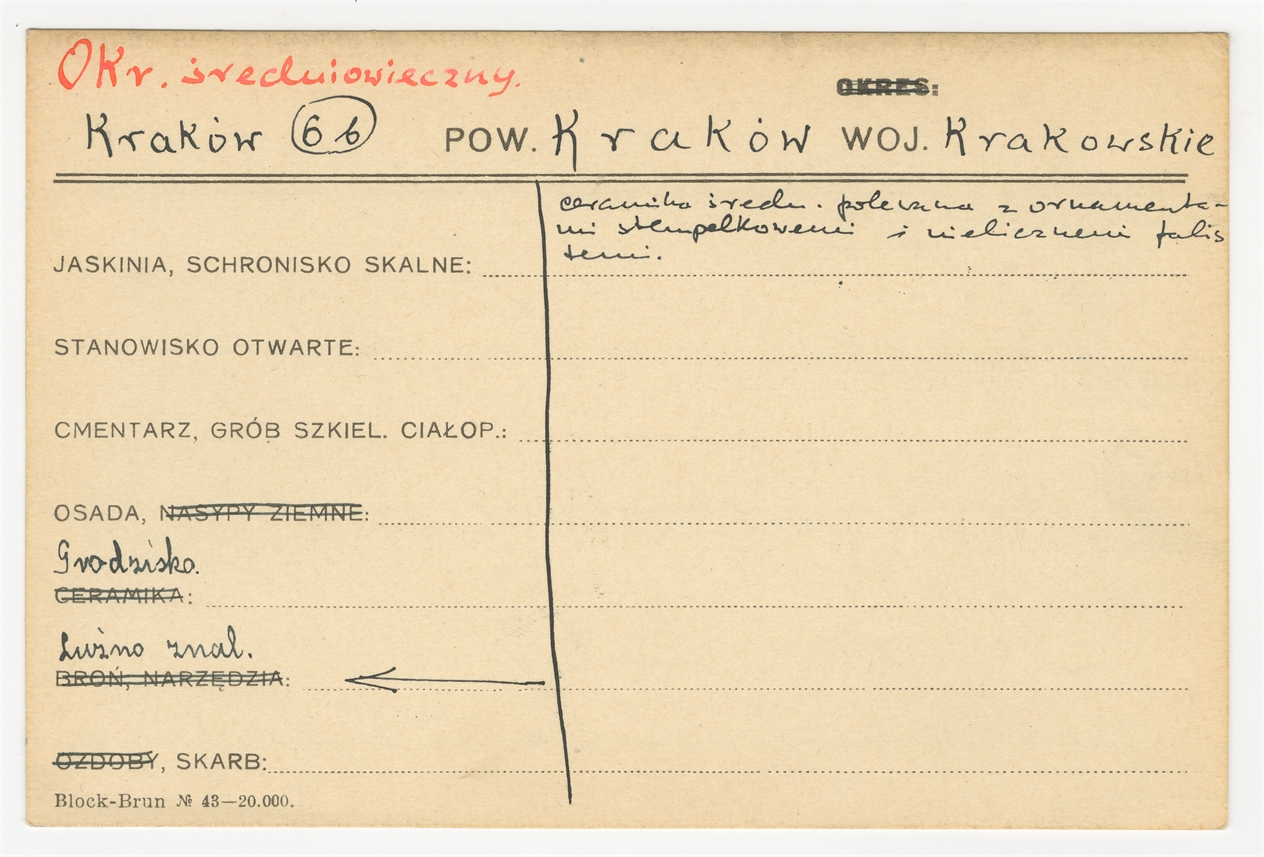 Okr. średniowieczny.
OKRES:
Kraków 66 POW. Kraków WOJ. Krakowskie
ceramika średn. polewana z ornamenta-
mi stempelkowemi i nielicznemi falis
temi.
JASKINIA, SCHRONISKO SKALNE:
STANOWISKO OTWARTE:
CMENTARZ, GRÓB SZKIEL. CIAŁOP.:
OSADA, NASYPY ZIEMNE:
Grodzisko.
CERAMIKA:
Luźno znal.
BROŃ, NARZĘDZIA:
OZDOBY, SKARB:
Block-Brun № 43—20.000.